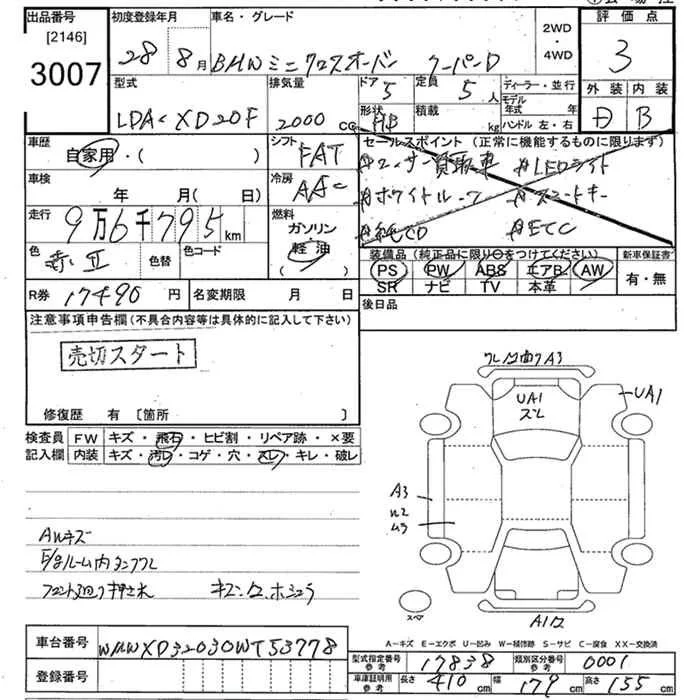 出品番号 初度登録年月 車名・グレード 2WD・4WD 評価点
[2146]
3007 28 8月 BMWミニクロスオーバー クーパーD 3
型式 排気量 ドア 5 定員 5人 ディーラー・並行 外装 内装
LDA-XD20F 2000 cc 形状 HB 積載 kg モデル年式 年 D B
ハンドル 左・右
車歴 シフト セールスポイント(正常に機能するものに限ります)
自家用・( ) FAT ワンオーナー買取車 LEDライト
車検 冷房 ホワイトルーフ スマートキー
年 月(日) AAC 純CD ETC
走行 9万6千795km 燃料 ガソリン 軽油
装備品(純正品に限り○をつけてください) 新車保証書
色 赤II 色替 色コード PS PW ABS エアB AW 有・無
SR ナビ TV 本革
R券 17490円 名変期限 月 日 後日品
注意事項申告欄(不具合内容等は具体的に記入して下さい)
売切スタート
修復歴 有 〔箇所 〕
検査員 FW キズ・飛石・ヒビ割・リペア跡・×要
記入欄 内装 キズ・汚レ・コゲ・穴・スレ・キレ・破レ
A3
UA1
ズレ
UA1
A3
ムラ
AWキズ
E/gルーム内
スペア
A1
A-キズ E-エクボ U-凹み W-補修跡 S-サビ C-腐食 XX-交換済
車台番号 WMWXD32030WT53778
型式指定番号 参考 17838 類別区分番号 参考 0001
登録番号 車庫証明用 参考 長さ 410cm 幅 179cm 高さ 155cm